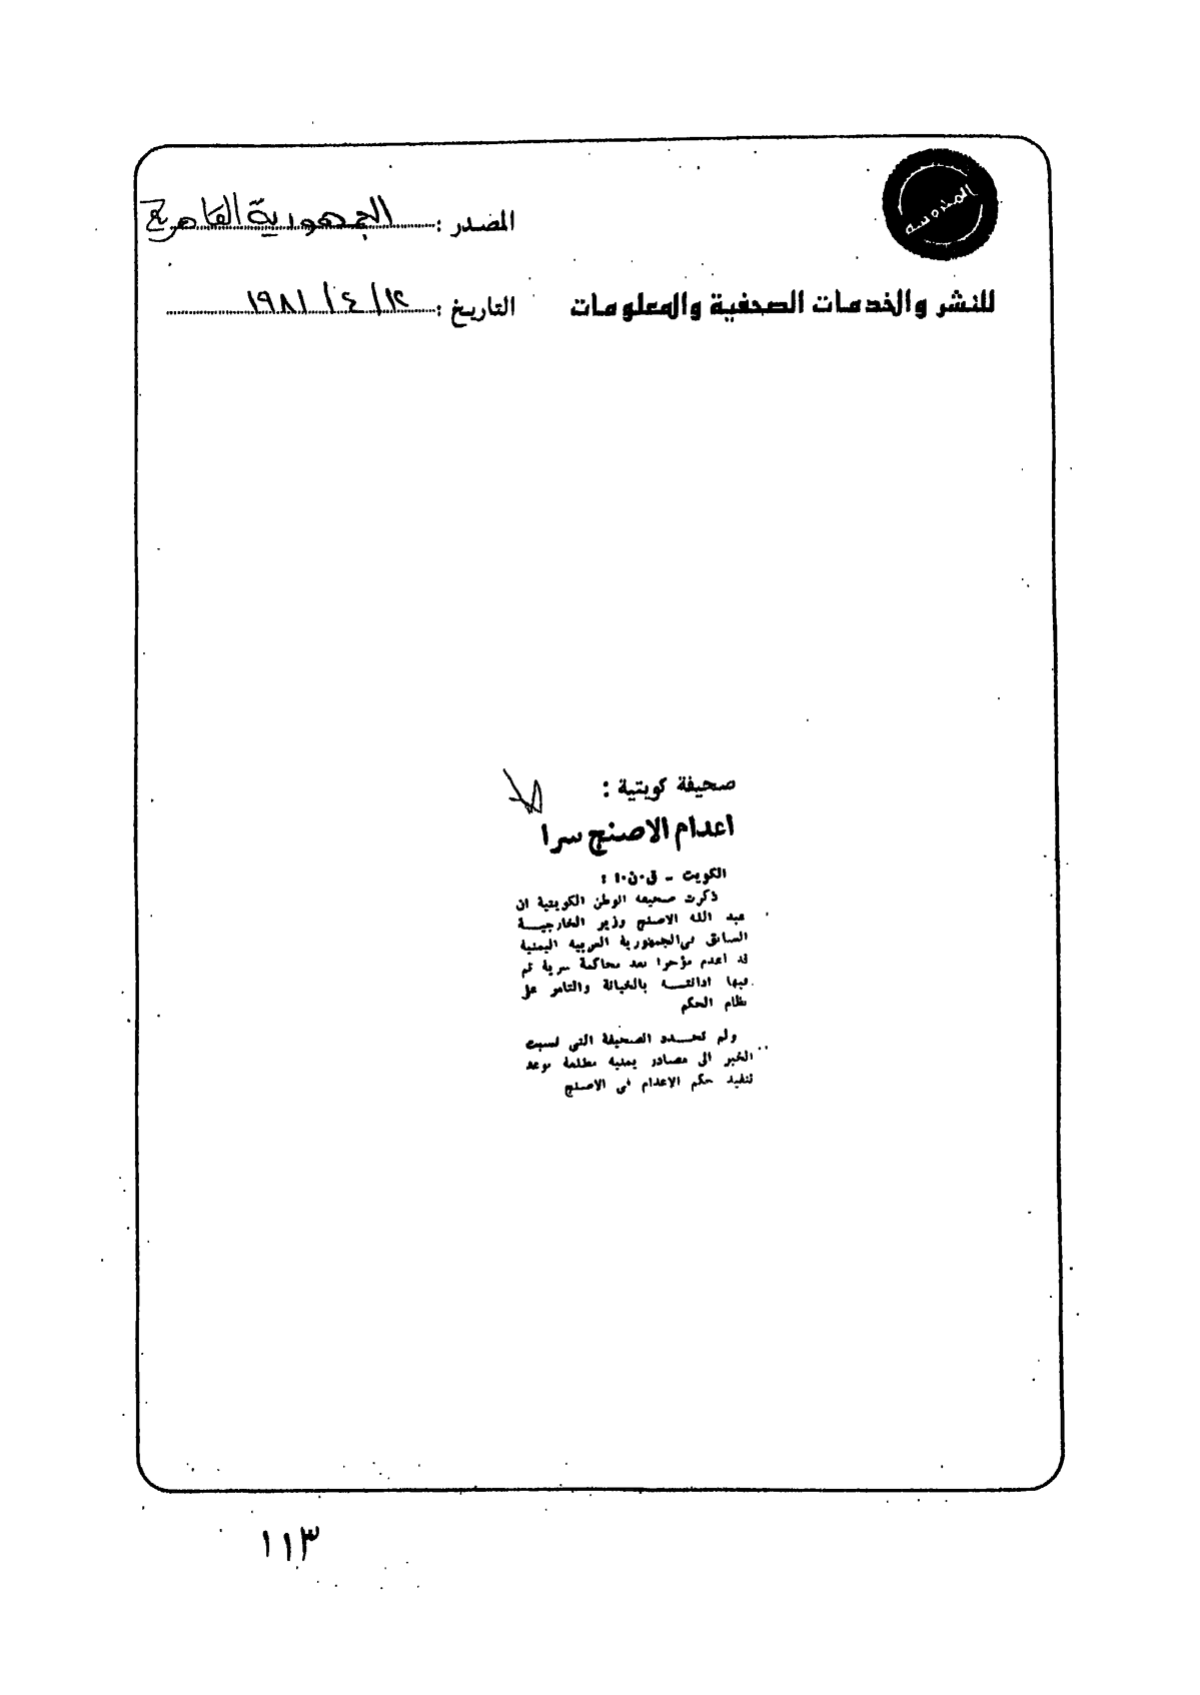 المصدر : الجمهورية القاهرية
للنشر والخدمات الصحفية والمعلومات
التاريخ : ١٢ / ٤ / ١٩٨١
صحيفة كويتية :
اعدام الاصنج سرا
الكويت - ق.ن.ا :
ذكرت صحيفة الوطن الكويتية ان
عبد الله الاصنج وزير الخارجيــة
السابق في الجمهورية العربية اليمنية
قد اعدم مؤخرا بعد محاكمة سرية تم
فيها ادانتــه بالخيانة والتامر على
نظام الحكم
ولم تحــدد الصحيفة التى نسبت
الخبر الى مصادر يمنية مطلعة موعد
تنفيذ حكم الاعدام فى الاصنج
١١٣